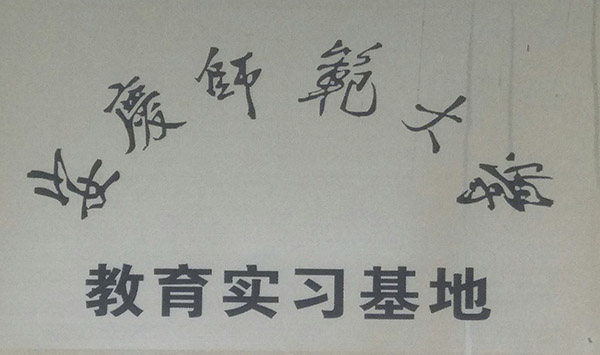 安慶師範大學
教育实习基地